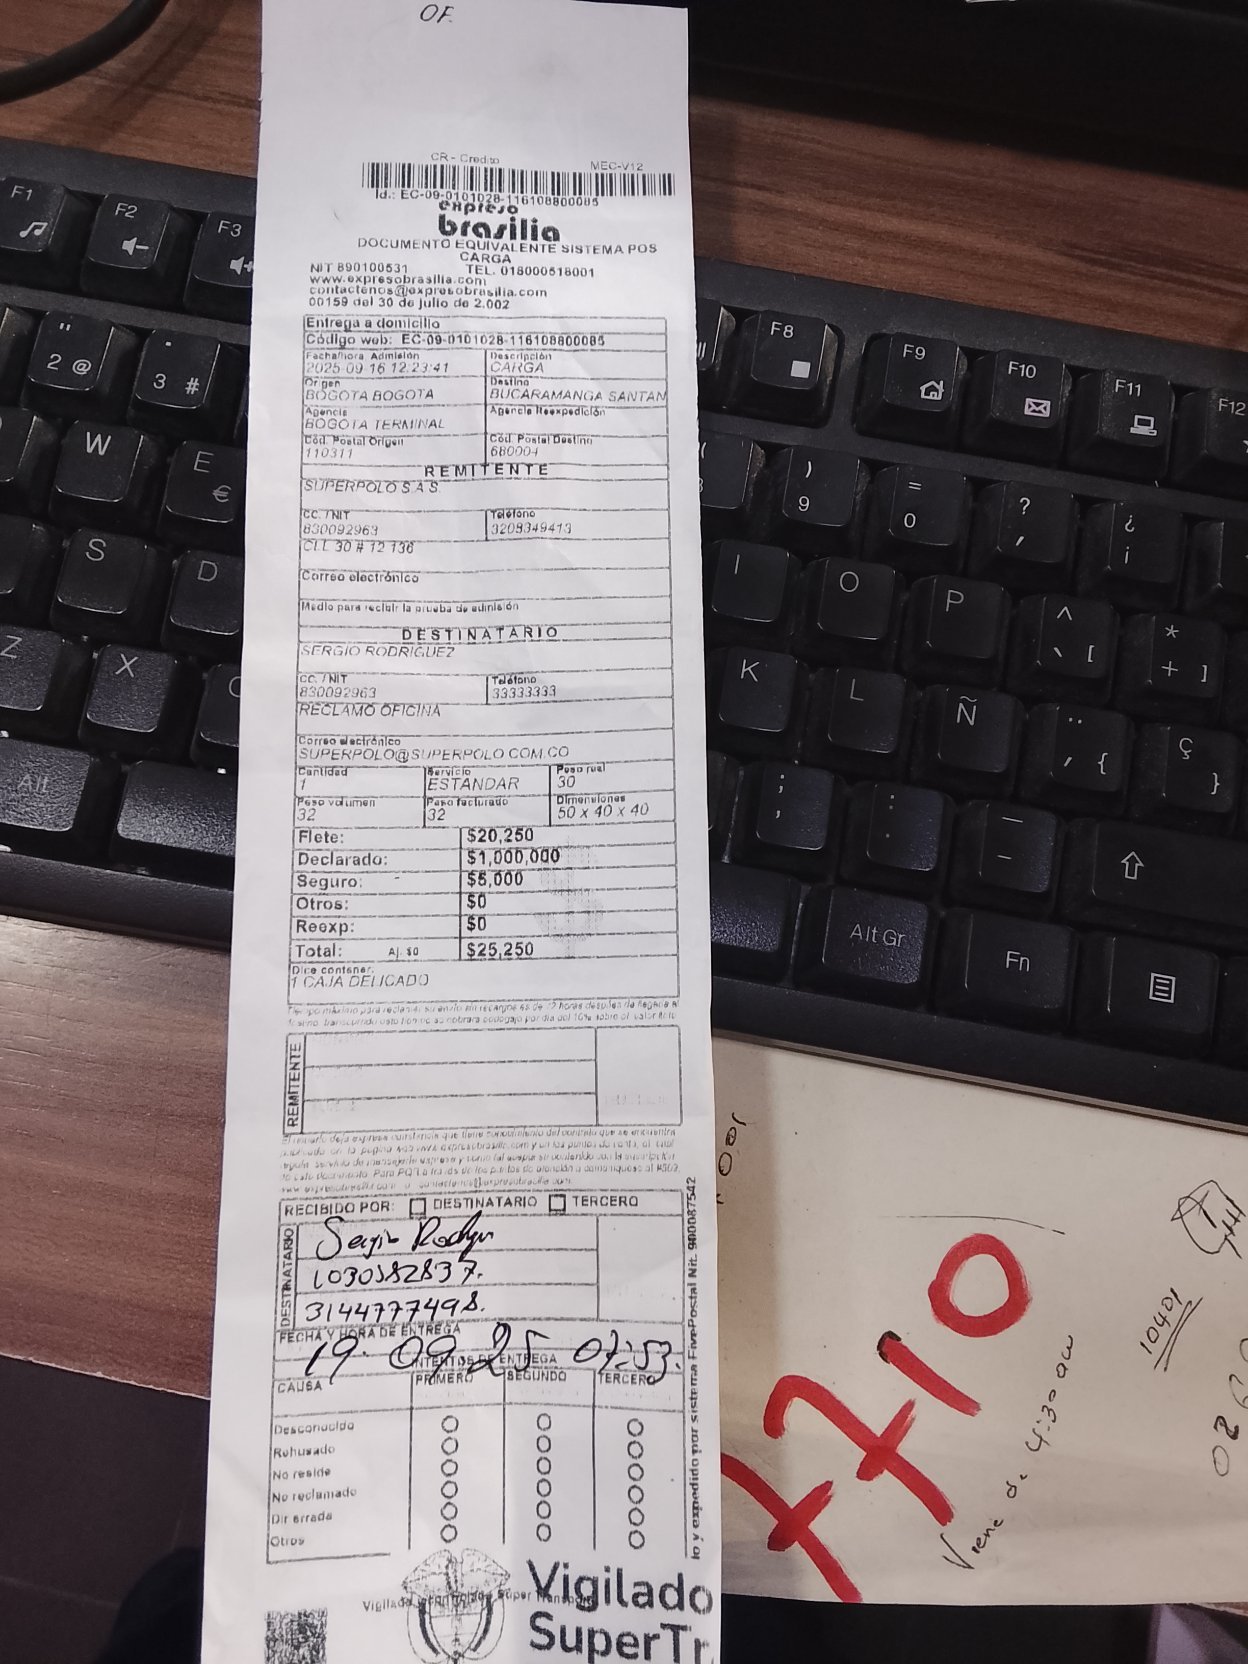 OF.
CR - Credito MEC-V12
Id.: EC-09-0101028-116108800085
expreso
brasilia
DOCUMENTO EQUIVALENTE SISTEMA POS
CARGA
NIT 890100531 TEL. 018000518001
www.expresobrasilia.com
contactenos@expresobrasilia.com
00159 del 30 de julio de 2.002
Entrega a domicilio
Código web: EC-09-0101028-116108800085
Fecha/hora Admisión Descripción
2025-09-16 12:23:41 CARGA
Origen Destino
BOGOTA BOGOTA BUCARAMANGA SANTAN
Agencia Agencia Reexpedición
BOGOTA TERMINAL
Cód. Postal Origen Cód. Postal Destino
110311 680004
REMITENTE
SUPERPOLO S.A.S.
CC. / NIT Teléfono
830092963 3208349413
CLL 30 # 12 136
Correo electrónico
Medio para recibir la prueba de admisión
DESTINATARIO
SERGIO RODRIGUEZ
CC. / NIT Teléfono
830092963 33333333
RECLAMO OFICINA
Correo electrónico
SUPERPOLO@SUPERPOLO.COM.CO
Cantidad Servicio Peso real
1 ESTANDAR 30
Peso volumen Peso facturado Dimensiones
32 32 50 x 40 x 40
Flete: $20,250
Declarado: $1,000,000
Seguro: $5,000
Otros: $0
Reexp: $0
Total: Aj. $0 $25,250
Dice contener:
1 CAJA DELICADO
REMITENTE
RECIBIDO POR: DESTINATARIO TERCERO
DESTINATARIO
Sergio Rodgz
1030582837.
3144777498.
FECHA Y HORA DE ENTREGA
19. 09 25 07:53.
INTENTOS DE ENTREGA
CAUSA PRIMERO SEGUNDO TERCERO
Desconocido
Rehusado
No reside
No reclamado
Dir errada
Otros
lo y expedido por sistema FivePostal Nit. 900087542
Vigilado
SuperTr
F1
F2
F3
F8
F9
F10
F11
F12
" 2 @
· 3 #
) 9
= 0
? ,
¿ ¡
W
E €
I
O
P
^ ` [
* + ]
S
D
K
L
Ñ
¨ ´ {
Ç }
Z
X
C
; ,
: .
_ -
Alt
Alt Gr
Fn
7710
10401
Viene de 4:30 am